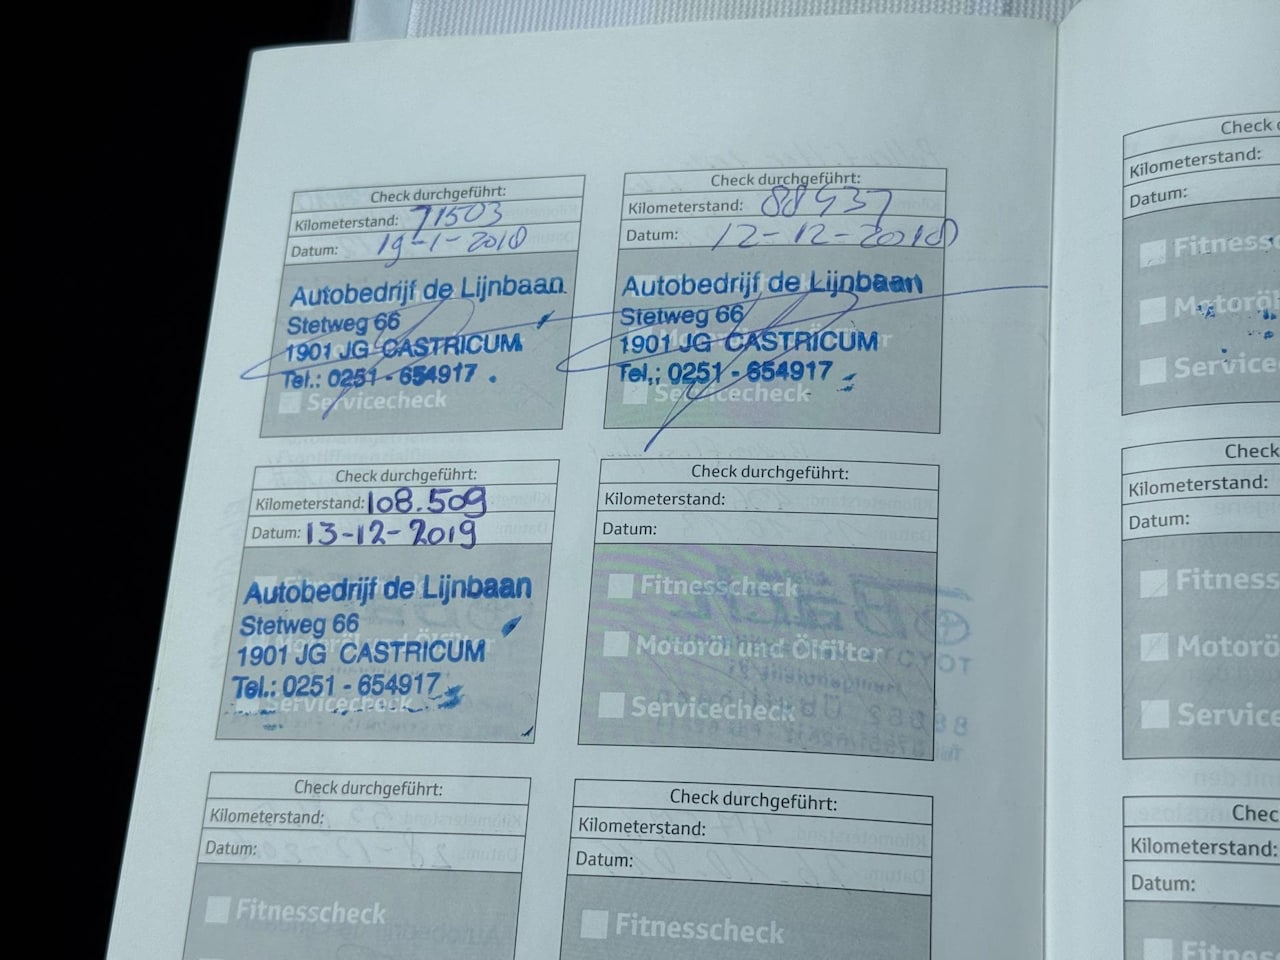 Check durchgeführt:
Kilometerstand: 71503
Datum: 19-1-2018
Autobedrijf de Lijnbaan
Stetweg 66
1901 JG CASTRICUM
Tel.: 0251 - 654917
Servicecheck
Check durchgeführt:
Kilometerstand: 88937
Datum: 12-12-2018
Autobedrijf de Lijnbaan
Stetweg 66
1901 JG CASTRICUM
Tel.: 0251 - 654917
Servicecheck
Check durchgeführt:
Kilometerstand: 108.509
Datum: 13-12-2019
Autobedrijf de Lijnbaan
Stetweg 66
1901 JG CASTRICUM
Tel.: 0251 - 654917
Servicecheck
Check durchgeführt:
Kilometerstand:
Datum:
Fitnesscheck
Motoröl und Ölfilter
Servicecheck
Check durchgeführt:
Kilometerstand:
Datum:
Fitnesscheck
Check durchgeführt:
Kilometerstand:
Datum:
Fitnesscheck
Check
Kilometerstand:
Datum:
Fitness
Motoröl
Service
Check
Kilometerstand:
Datum:
Fitness
Motorö
Service
Chec
Kilometerstand:
Datum:
Fitnes